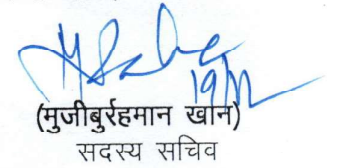 19/12
(मुजीबुर्रहमान खान)
सदस्य सचिव